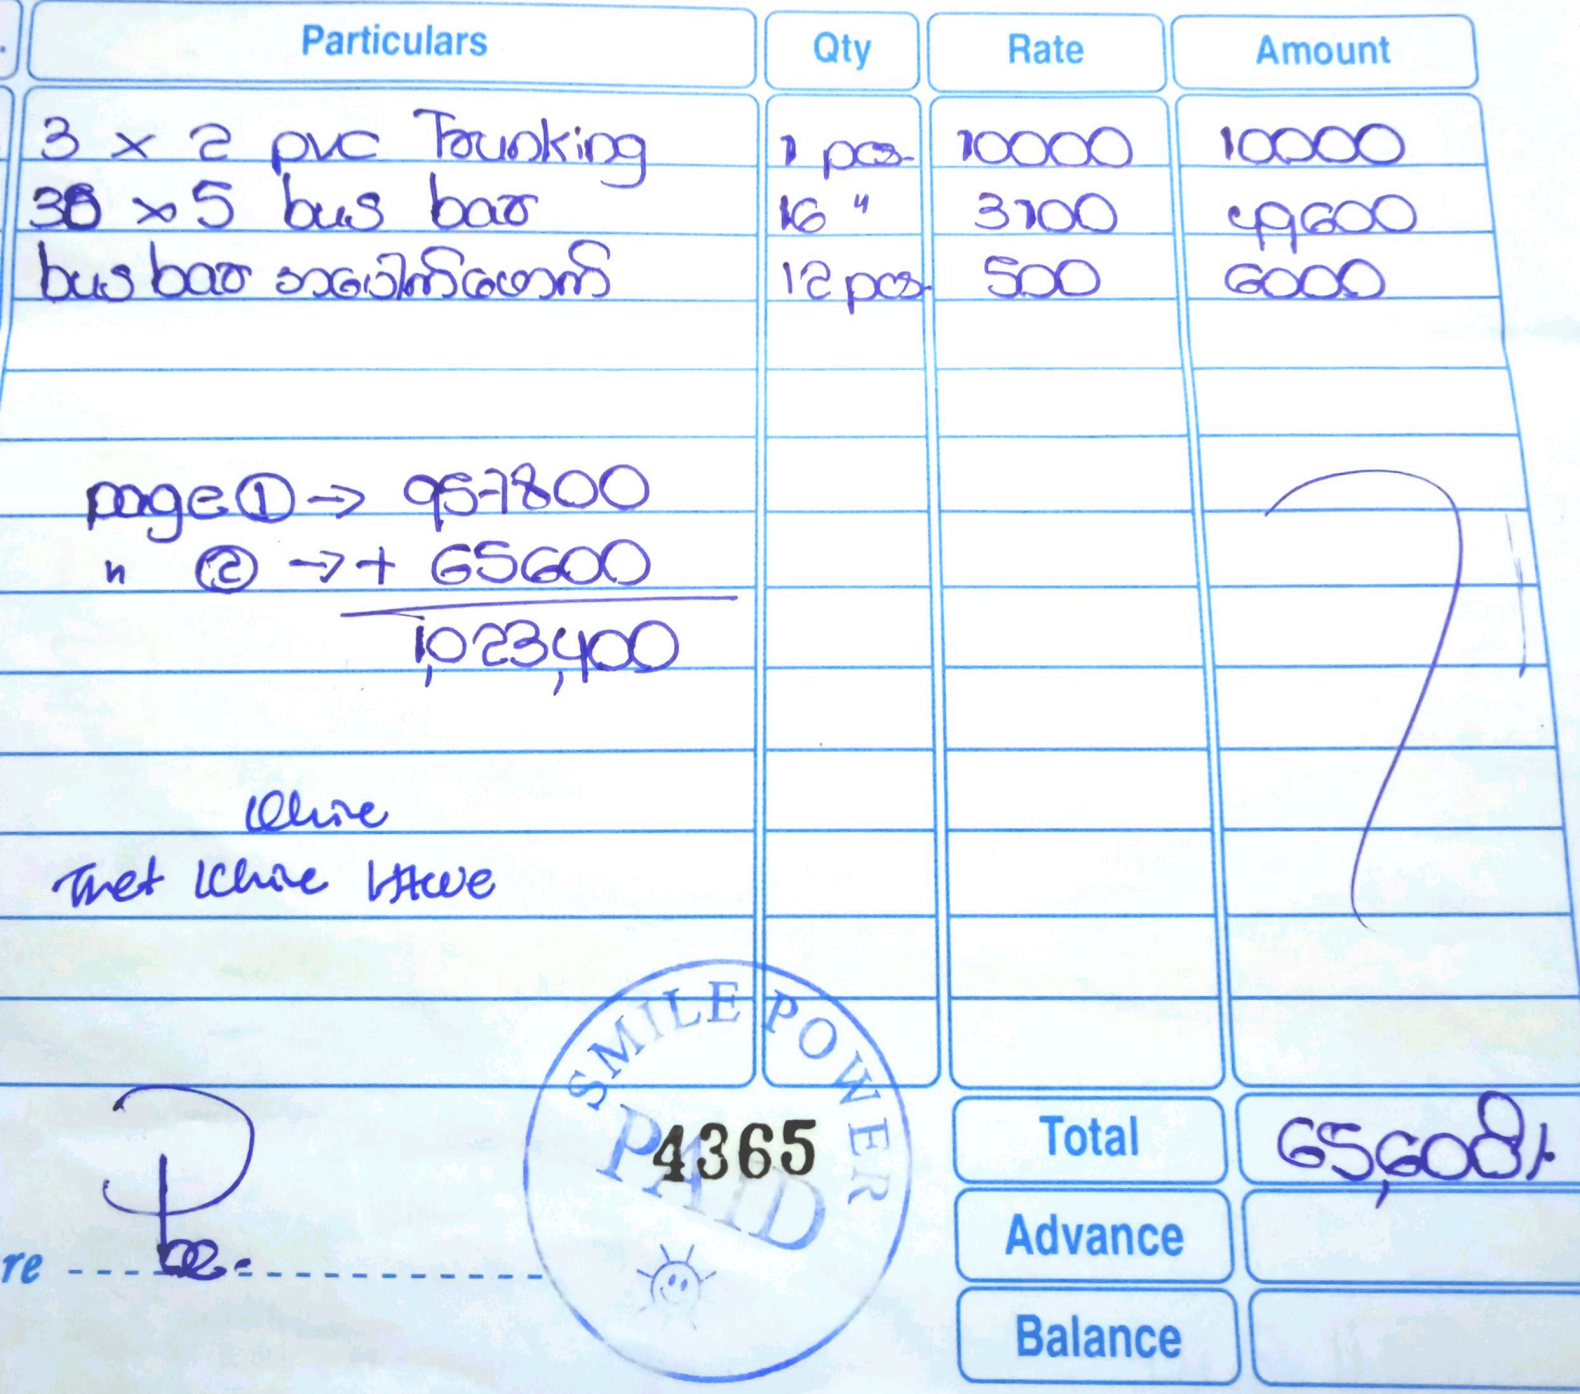 Particulars Qty Rate Amount
3 x 2 pvc Trunking 1 pcs 10000 10000
30 x 5 bus bar 16 " 3100 49600
bus bar 12 pcs 500 6000
page ① → 957800
" ② → + 65600
1,023,400
Thet Khine Htwe
SMILE POWER
PAID
4365
Total 65,600/-
Advance
re
Balance